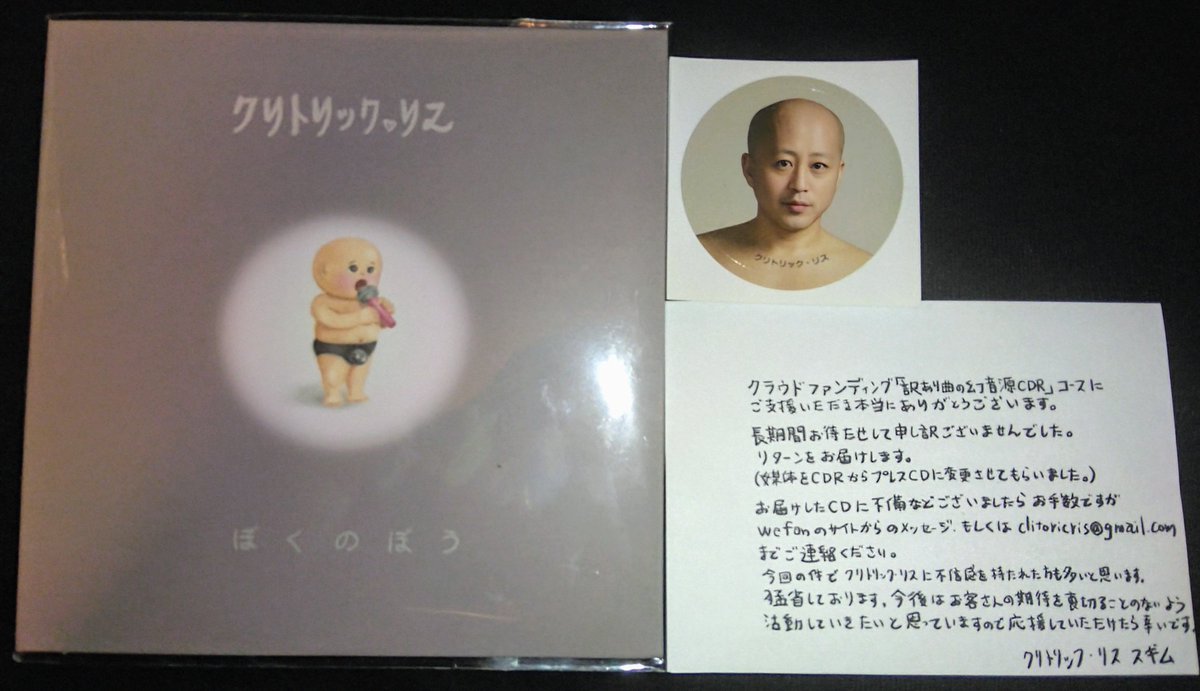 クリトリック・リス
ぼくのぼう
クリトリック・リス
クラウドファンディング「訳あり曲の幻音源CDR」コースに
ご支援いただき本当にありがとうございます。
長期間お待たせして申し訳ございませんでした。
リターンをお届けします。
(媒体をCDRからプレスCDに変更させてもらいました。)
お届けしたCDに不備などございましたらお手数ですが
wefanのサイトからのメッセージ、もしくは clitoricris@gmail.com
までご連絡ください。
今回の件でクリトリック・リスに不信感を持たれた方も多いと思います。
猛省しております。今後はお客さんの期待を裏切ることのないよう
活動していきたいと思っていますので応援していただけたら幸いです。
クリトリック・リス スギム